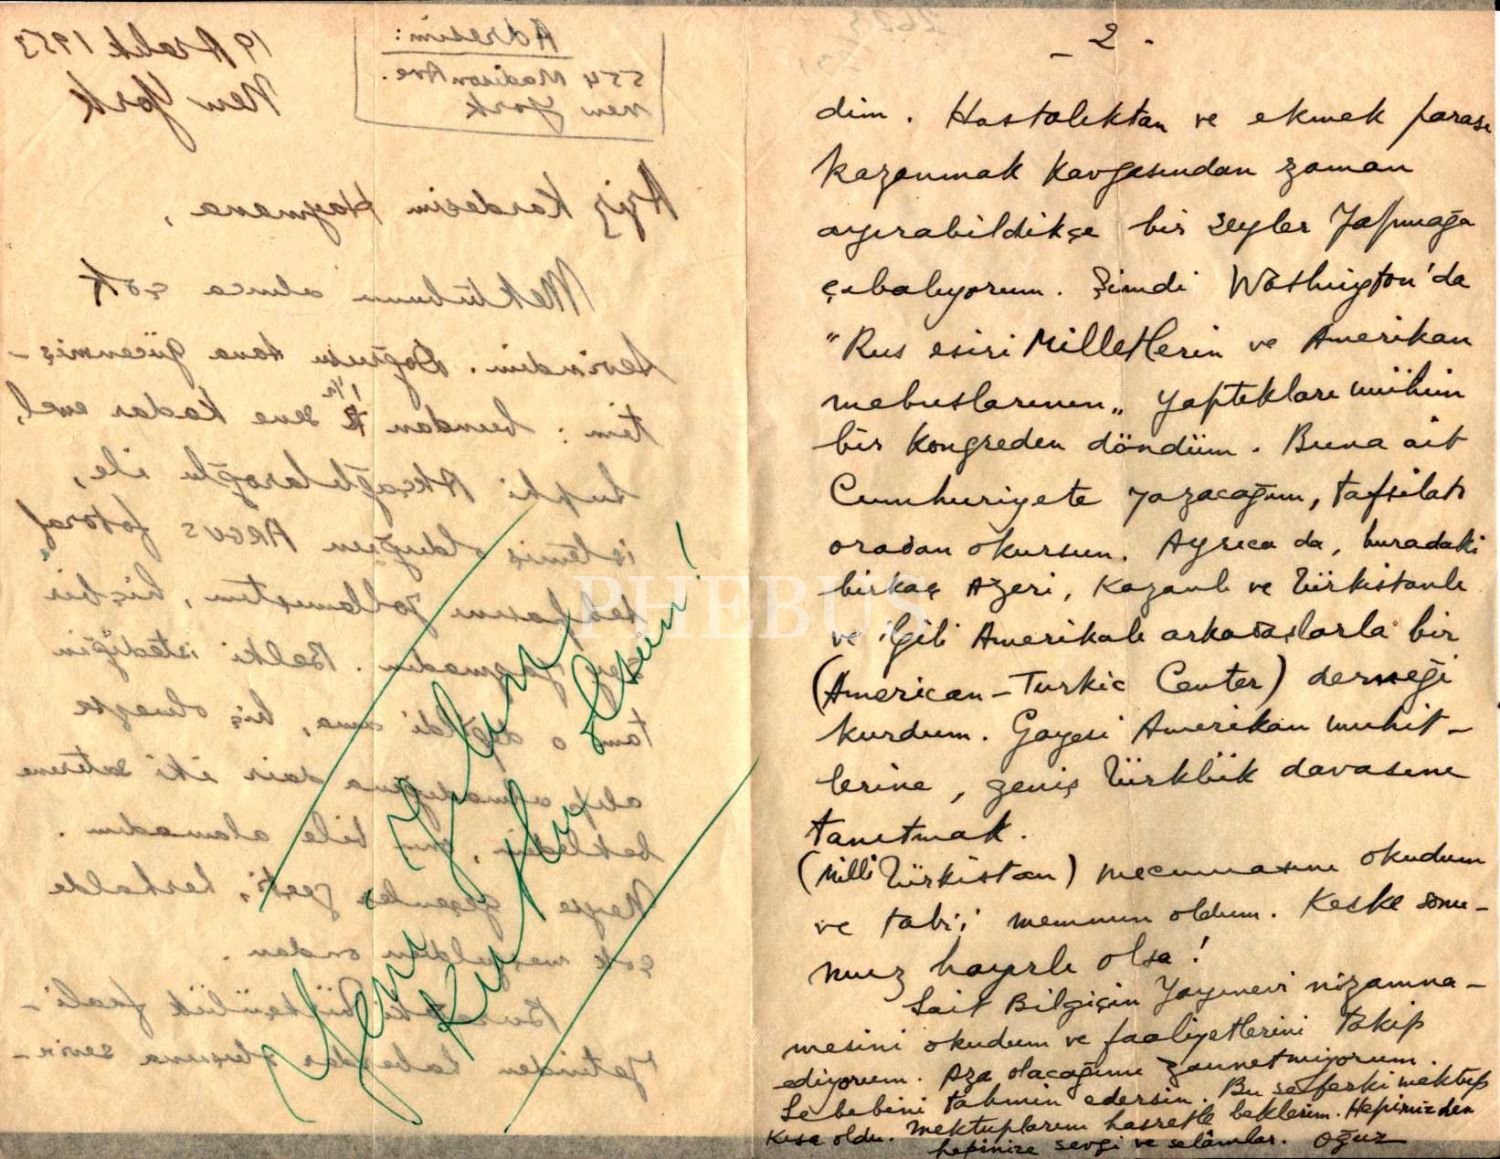 19 Aralık 1953
New York
Adresim:
554 Madison Ave.
New York
Aziz Kardeşim Haymana,
Mektubunu alınca çok
sevindim. Doğrusu sana gücenmiş-
tim: bundan 1 1/2 sene kadar evel,
Suphi Akçağlılaroğlu ile,
istemiş olduğun ARGUS fotoraf
yollamıştım, hiçbir
şey yazmadın. Belki istediğin
tam o değildi ama, hiç olmazsa
alıp almadığına dair iki satırını
bekledim, onu bile alamadım.
Neyse geçenler geçti, herhalde
çok meşguldün ondan.
Buradaki Türkçülük faali-
yetinden haberdar oluşuna sevin-
Yeni Yılınız
Kutlu Olsun!
PHEBUS
- 2 -
dim. Hastalıktan ve ekmek parası
kazanmak kavgasından zaman
ayırabildikçe bir şeyler yapmağa
çabalıyorum. Şimdi Washington'da
"Rus esiri Milletlerin ve Amerikan
mebuslarının„ yaptıkları mühim
bir kongreden döndüm. Buna ait
Cumhuriyete yazacağım, tafsilatı
oradan okursun. Ayrıca da, buradaki
birkaç Azeri, Kazanlı ve Türkistanlı
ve ilgili Amerikalı arkadaşlarla bir
(American-Turkic Center) derneği
kurdum. Gayesi Amerikan muhit-
lerine, geniş Türklük davasını
tanıtmak.
(Milli Türkistan) mecmuasını okudum
ve tabi'i memnun oldum. Keşke sonu-
muz hayırlı olsa!
Sait Bilgiçin Yayınevi nizamna-
mesini okudum ve faaliyetlerini takip
ediyorum. Aza olacağımı zannetmiyorum.
Sebebini tahmin edersin. Bu seferki mektup
kısa oldu. Mektuplarını hasretle beklerim. Hepimizden
hepinize sevgi ve selâmlar. Oğuz